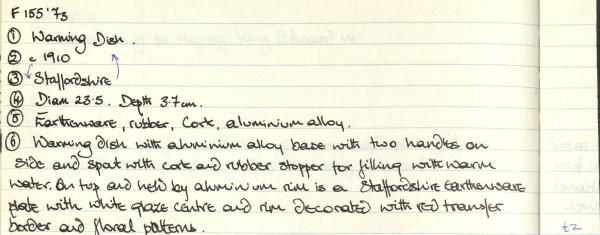 F 155'73
① Warming Dish.
② c 1910
③ Staffordshire
④ Diam 23.5. Depth 3.7cm.
⑤ Earthenware, rubber, Cork, aluminium alloy.
⑥ Warming dish with aluminium alloy base with two handles on
side and spout with cork and rubber stopper for filling with warm
water. On top and held by aluminium rim is a Staffordshire Earthenware
plate with white glaze centre and rim decorated with red transfer
border and floral patterns.
t2